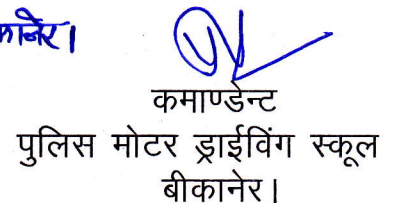 कमाण्डेन्ट
पुलिस मोटर ड्राईविंग स्कूल
बीकानेर।